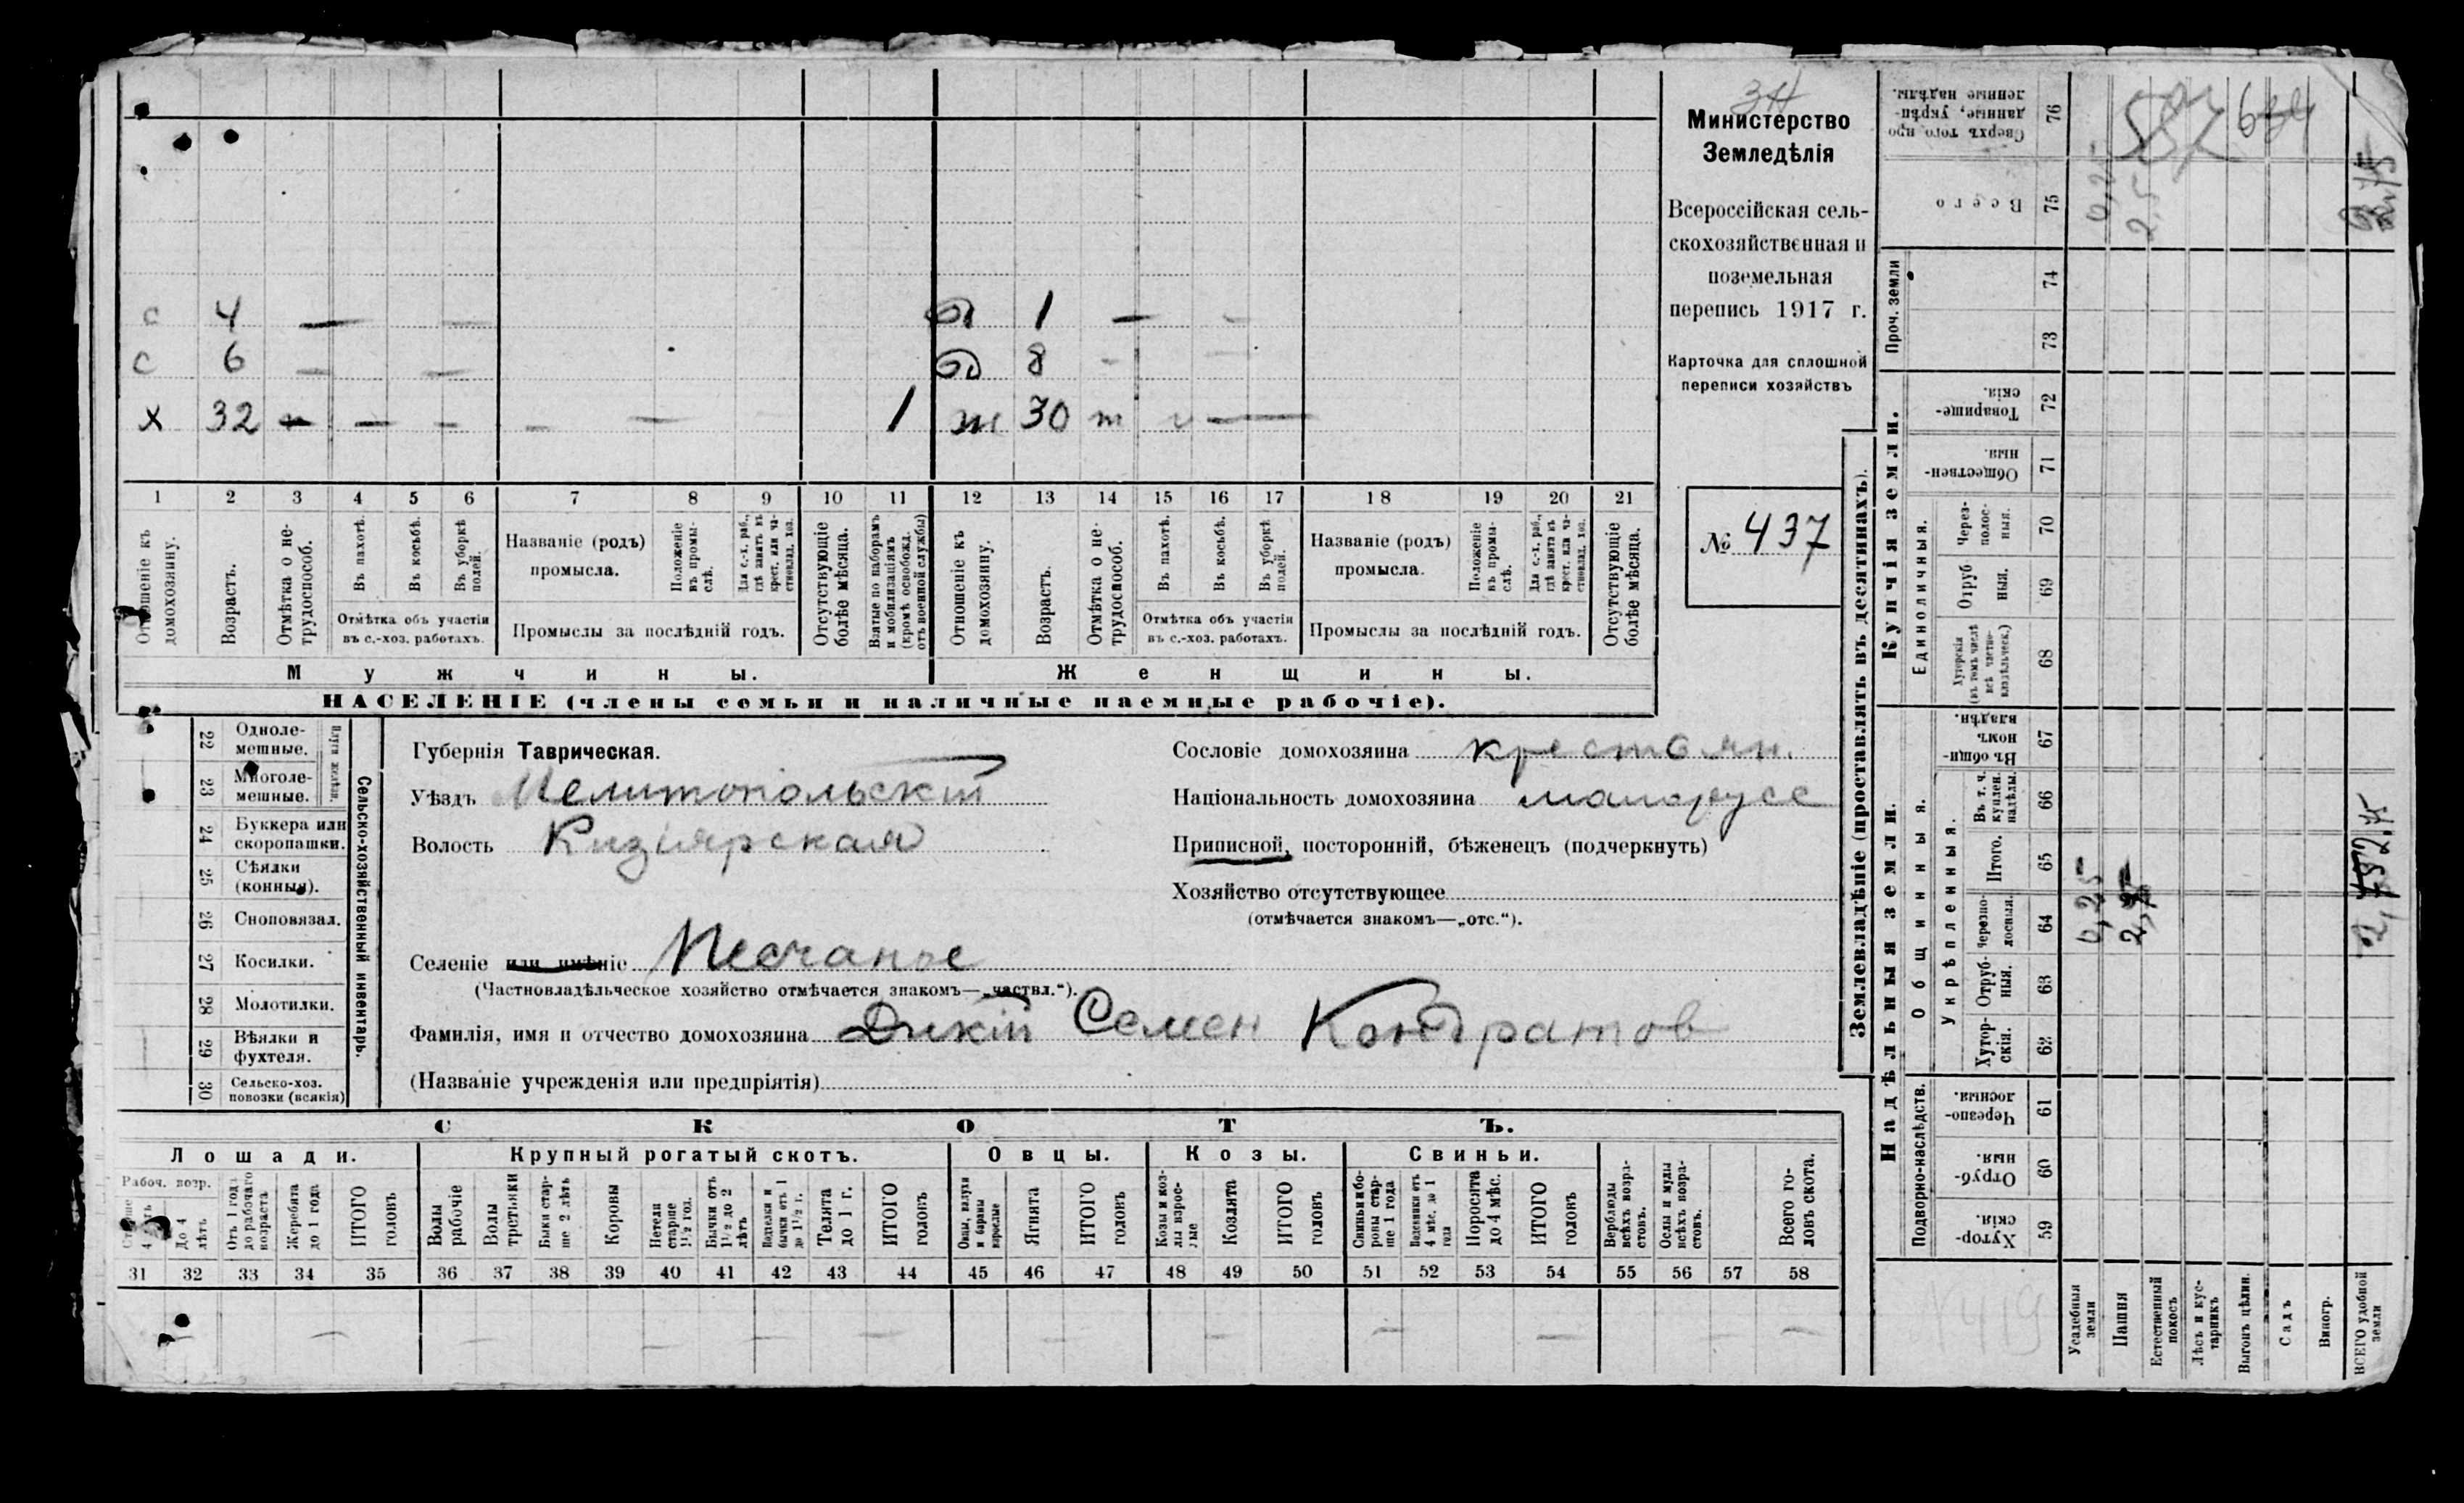 Министерство
Земледѣлія
Всероссійская сель-
скохозяйственная и
поземельная
перепись 1917 г.
Карточка для сплошной
переписи хозяйствъ
№ 437
с 4 — — д 1 — -
с 6 — — д 8 - —
х 32 — — — — — 1 ж 30 т — —
1 2 3 4 5 6 7 8 9 10 11 12 13 14 15 16 17 18 19 20 21
Отношеніе къ домохозяину.
Возрастъ.
Отмѣтка о не-трудоспособ.
Въ пахотѣ.
Въ косьбѣ.
Въ уборкѣ полей.
Отмѣтка объ участіи
въ с.-хоз. работахъ.
Названіе (родъ)
промысла.
Положеніе въ промы-слѣ.
Для с.-х. раб., гдѣ занятъ въ крест. или ча-стновлад. хоз.
Промыслы за послѣдній годъ.
Отсутствующіе болѣе мѣсяца.
Взятые по наборамъ и мобилизаціямъ (кромѣ освобожд. отъ военной службы)
Отношеніе къ домохозяину.
Возрастъ.
Отмѣтка о не-трудоспособ.
Въ пахотѣ.
Въ косьбѣ.
Въ уборкѣ полей.
Отмѣтка объ участіи
въ с.-хоз. работахъ.
Названіе (родъ)
промысла.
Положеніе въ промы-слѣ.
Для с.-х. раб., гдѣ занята въ крест. или ча-стновлад. хоз.
Промыслы за послѣдній годъ.
Отсутствующіе болѣе мѣсяца.
Мужчины. Женщины.
НАСЕЛЕНІЕ (члены семьи и наличные наемные рабочіе).
22 Одноле-мешные.
23 Многоле-мешные.
24 Буккера или скоропашки.
25 Сѣялки (конныя).
26 Сноповязал.
27 Косилки.
28 Молотилки.
29 Вѣялки и фухтеля.
30 Сельско-хоз. повозки (всякія)
Сельско-хозяйственный инвентарь.
Губернія Таврическая.
Уѣздъ Мелитопольскій
Волость Кизіярская
Сословіе домохозяина крестьян.
Національность домохозяина малорусс
Приписной, посторонній, бѣженецъ (подчеркнуть)
Хозяйство отсутствующее
(отмѣчается знакомъ—„отс.“).
Селеніе или имѣніе Песчаное
(Частновладѣльческое хозяйство отмѣчается знакомъ—„частвл.“).
Фамилія, имя и отчество домохозяина Дикій Семен Кондратов
(Названіе учрежденія или предпріятія)
СКОТЪ.
Лошади. Крупный рогатый скотъ. Овцы. Козы. Свиньи.
Рабоч. возр.
До 4 лѣтъ
Отъ 1 года до рабочаго возраста
Жеребята до 1 года
ИТОГО головъ
Волы рабочіе
Волы третьяки
Быки стар-ше 2 лѣтъ
Коровы
Нетели старше 1½ год.
Бычки отъ 1½ до 2 лѣтъ
Телята до 1 г.
ИТОГО головъ
Ягнята
ИТОГО головъ
Козы и коз-лы взрос-лые
Козлята
ИТОГО головъ
Свиньи и бо-ровы стар-ше 1 года
Поросята до 4 мѣс.
ИТОГО головъ
Верблюды всѣхъ возра-стовъ.
Ослы и мулы всѣхъ возра-стовъ.
Всего го-ловъ скота.
31 32 33 34 35 36 37 38 39 40 41 42 43 44 45 46 47 48 49 50 51 52 53 54 55 56 57 58
Землевладѣніе (проставлять въ десятинахъ).
Надѣльныя земли. Купчія земли. Проч. земли
Подворно-наслѣдств.
Общинныя.
Укрѣпленныя.
Единоличныя.
59 Хутор-скія.
60 Отруб-ныя.
61 Черезпо-лосныя.
62 Хутор-скія.
63 Отруб-ныя.
64 Черезпо-лосныя.
65 Итого.
66 Въ т. ч. куплен. надѣлы.
67 Въ общин-номъ владѣн.
68 Хуторскія (въ томъ числѣ всѣ частно-владѣльческ.)
69 Отруб-ныя.
70 Через-полос-ныя.
71 Обществен-ныя.
72 Товарище-скія.
73
74
75 Всего
76 Сверхъ того про-данные, укрѣп-ленные надѣлы.
Усадебныя земли 0,25 0,25
Пашня 2,5
Естественный покосъ
Лѣсъ и кус-тарникъ
Выгонъ цѣлин.
Садъ
Виногр.
ВСЕГО удобной земли